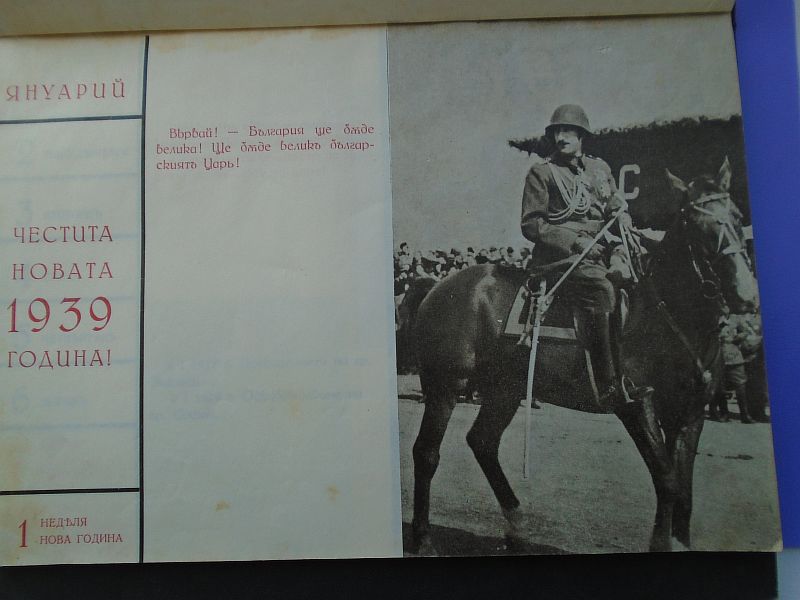 ЯНУАРИЙ
ЧЕСТИТА
НОВАТА
1939
ГОДИНА!
1 НЕДѢЛЯ
НОВА ГОДИНА
Вървай! — България ще бѫде
велика! Ще бѫде великъ българ-
скиятъ Царь!
С